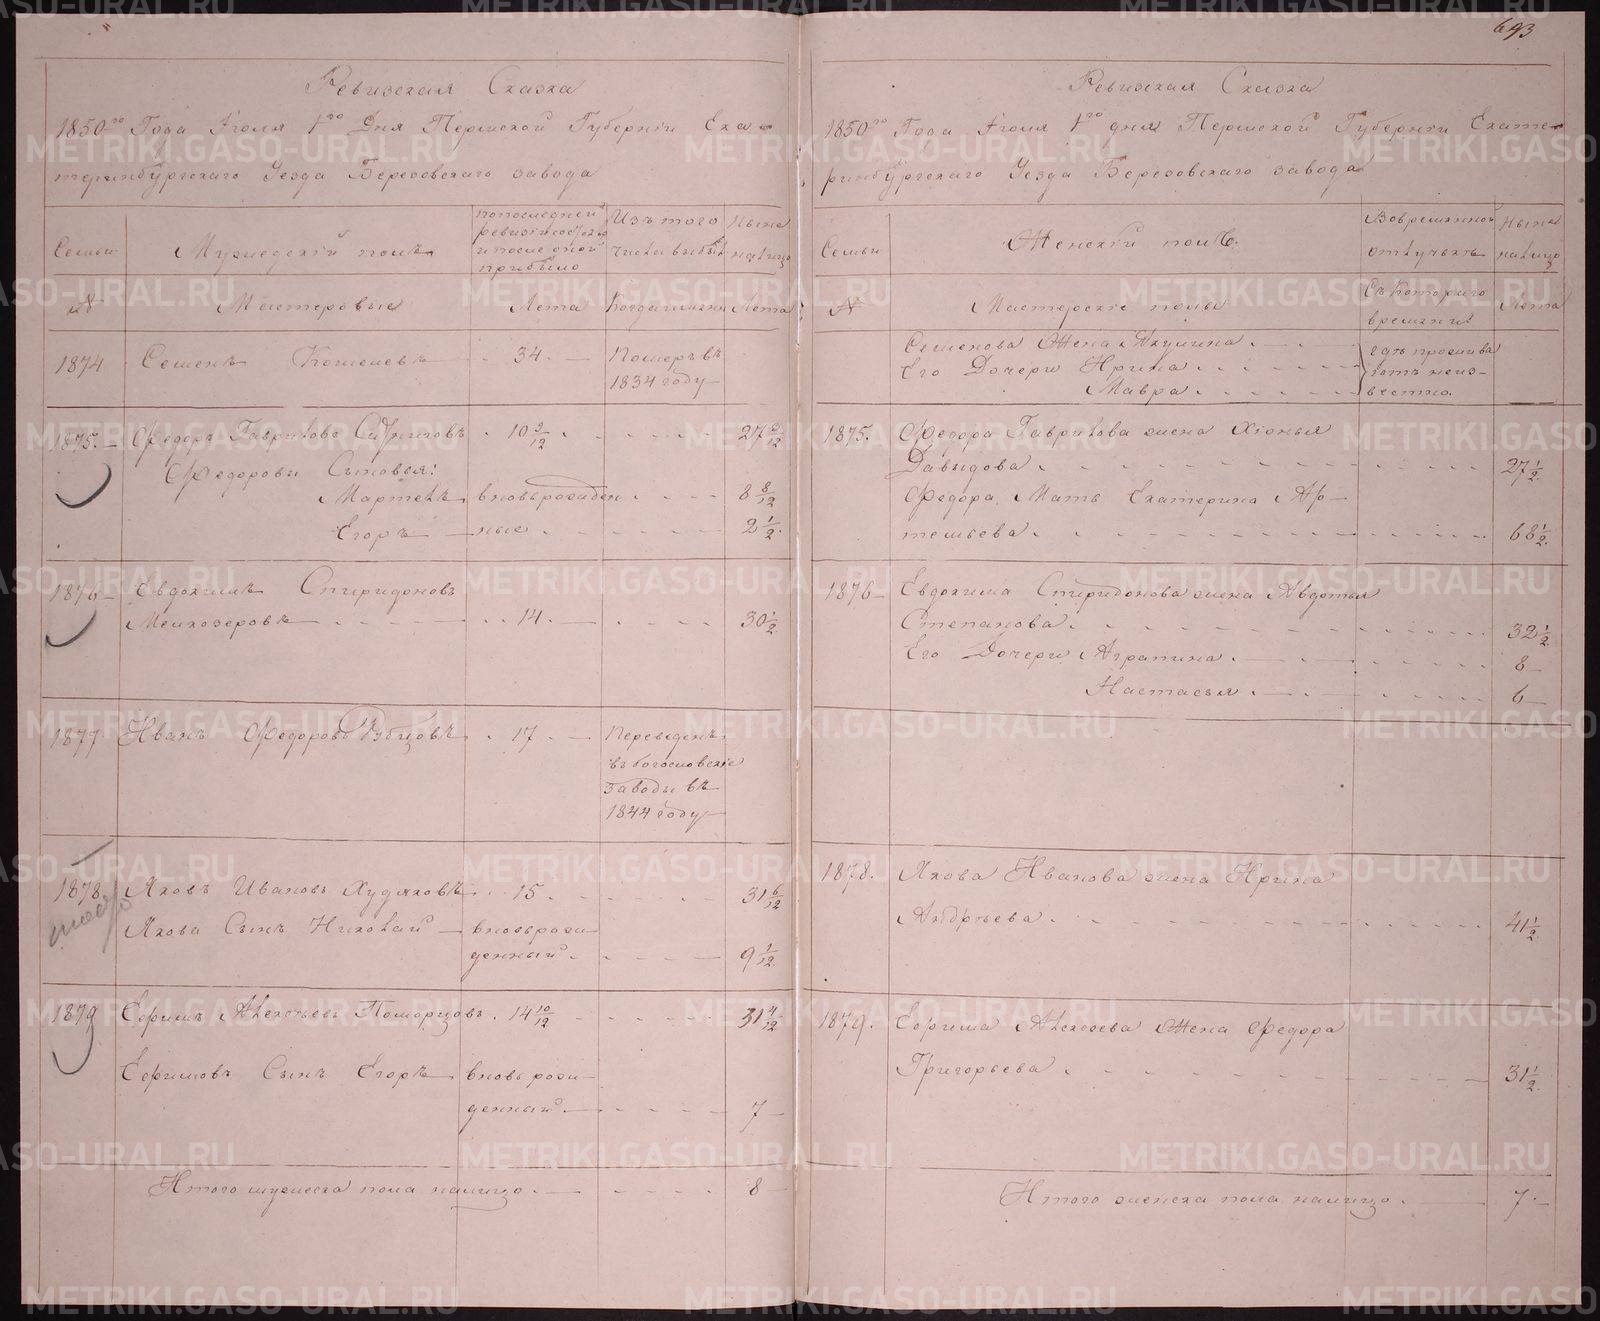 693
Ревизская Сказка
1850го Года Iюля 1го Дня Пермской Губернiи Ека-
теринбургскаго Уезда Березовскаго завода
Семьи
Мужеескiй полъ
попоследней ревизiи состояло и после оной прибыло
Изъ того числа выбыл
Ныне налицо
№
Мастеровые
Лета
Когда именно
Лета
1874 Семенъ Кошелевъ 34 Померъ въ
1834 году
1875. Федоръ Гавриловъ 10 27
Федоровы Сыновья:
Мартенъ вновьрожден 8 8/12
Егоръ ные 2 1/2
1876 Евдокимъ Спиридоновъ
Мелкозеровъ 14 30 1/2
1877 Иванъ Федоровъ Зубцовъ 17 Переведенъ
въ богословскiе
заводы въ
1844 году
1878. Яковъ Ивановъ Худяковъ 15 31 6/12
Якова Сынъ Николай вновьрожи-
денный 9 1/12
1879 Ефимъ Алексеевъ Поморцовъ 14 10/12 31 4/12
Ефимовъ Сынъ Егоръ вновь рожи-
денный 7
Итого мужеска пола налицо 8
Ревизская Сказка
1850го Года Iюля 1го дня Пермской Губернiи Екате-
ринбургскаго Уезда Березовскаго завода
Семьи
Женскiй полъ.
Вовременной отлучкъ
Ныне налицо
№
Мастерскiе жены
Съ которого времяни
Лета
Семенова Жена Акулина
Его Дочери Ирина
Мавра
где прожива
ютъ неиз-
вестно.
1875. Федора Гаврилова жена Хiонья
Давыдова 27 1/2
Федора Мать Екатерина Ар-
темьева 68 1/2
1876 Евдокима Спиридонова жена Авдотья
Степанова 32 1/2
Его Дочери Аграпина 8
Настасья 6
1878. Якова Иванова жена Ирина
Андреева 41 1/2
1879. Ефима Алексеева Жена Федора
Григорьева 31 1/2
Итого женска пола налицо 7
METRIKI.GASO-URAL.RU